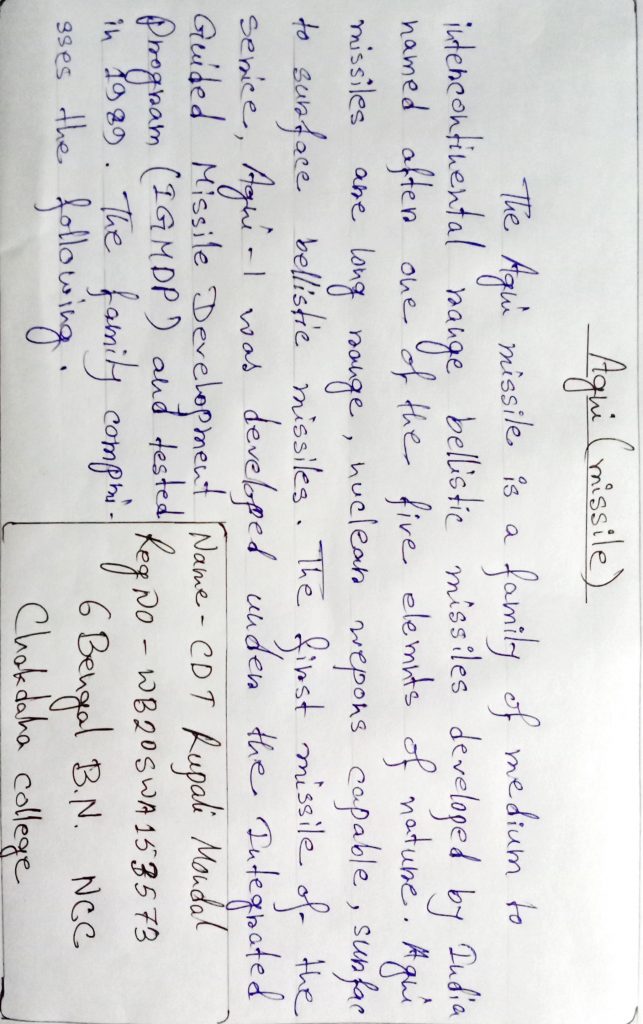 Agni (missile)
The Agni missile is a family of medium to
intercontinental range bellistic missiles developed by India
named after one of the five elemnts of nature. Agni
missiles are long range, nuclear wepons capable, surfac
to surface bellistic missiles. The first missile of the
serice, Agni-1 was developed under the Integrated
Guided Missile Development
Program (IGMDP) and tested
in 1989. The family compri-
sses the following.
Name - CDT Rupali Mondal
Reg NO - WB20SWA153573
6 Bengal B.N. NCC
Chakdaha college